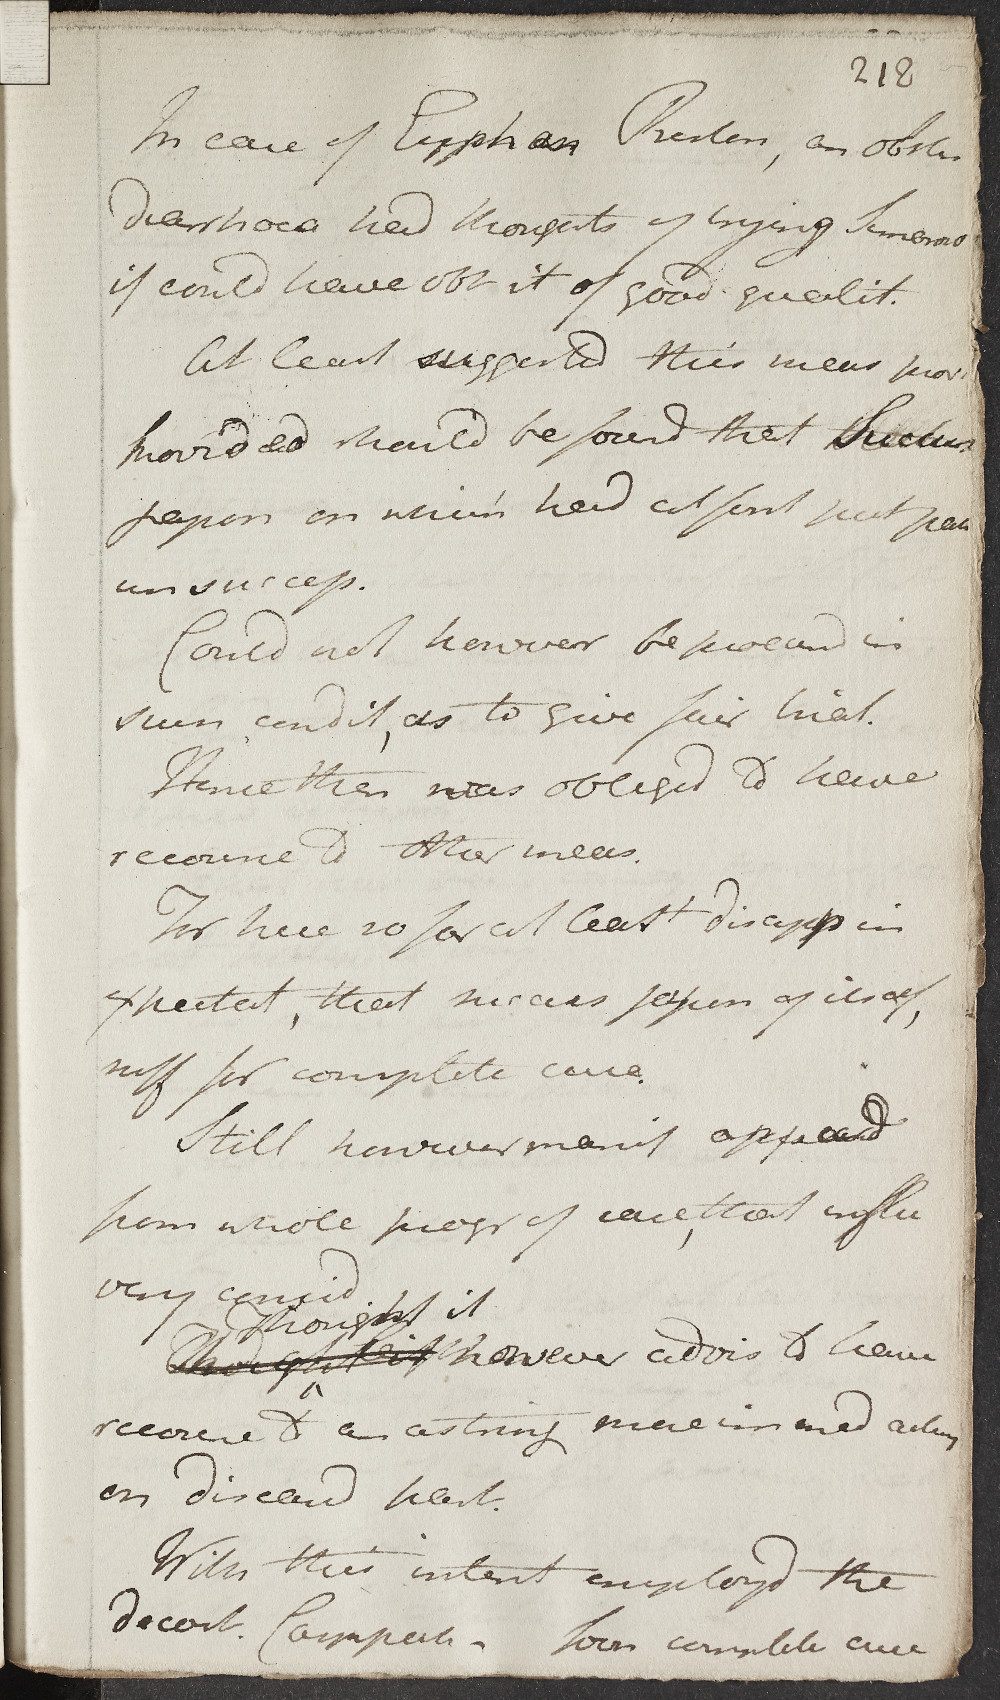 218
In case of Eupham Preston, an obstin
diarrhoea had thoughts of trying Simarou
if could have obt it of good qualit.
At least suggested this meas prov
provided should be found that Succus
japon on which had at first put pat
unsuccess.
Could not however be procured in
such condit, as to give fair trial.
Hence then was obliged to have
recourse to other meas.
For here so far at least disapp in
expectat, that succus japon of itself,
suff for complete cure.
Still however manif appeard
from whole progr of case, that influ
very consid
Thought it
however advis to have
recourse to an astring more immed acting
on diseasd part.
With this intent employd the
decoct. Campech. Soon complete cure